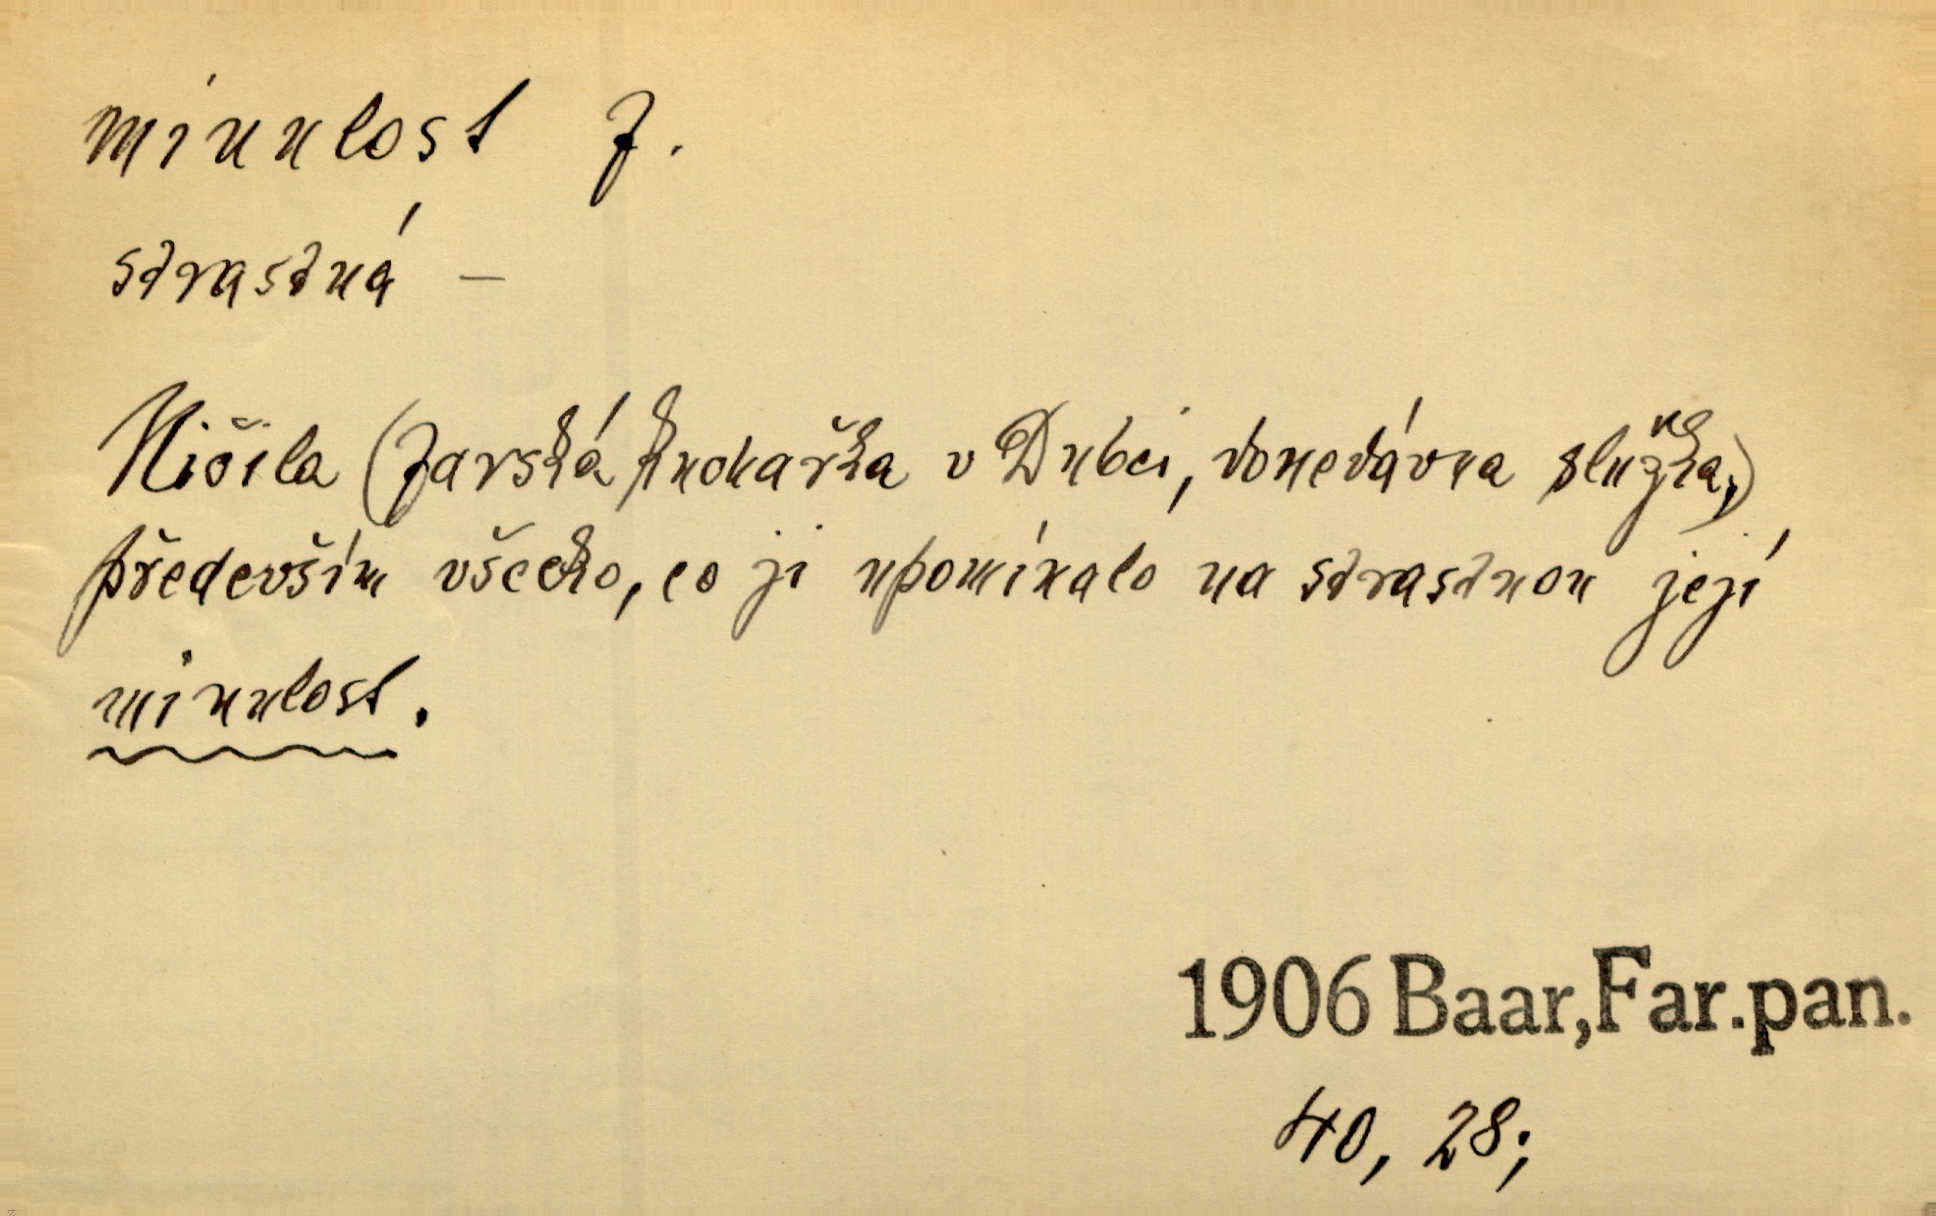 minulost f.
strastná –
Ničila (farská kuchařka v Dubci, donedávna služka,)
především všecko, co ji upomínalo na strastnou její
minulost.
1906 Baar, Far. pan.
40, 28;